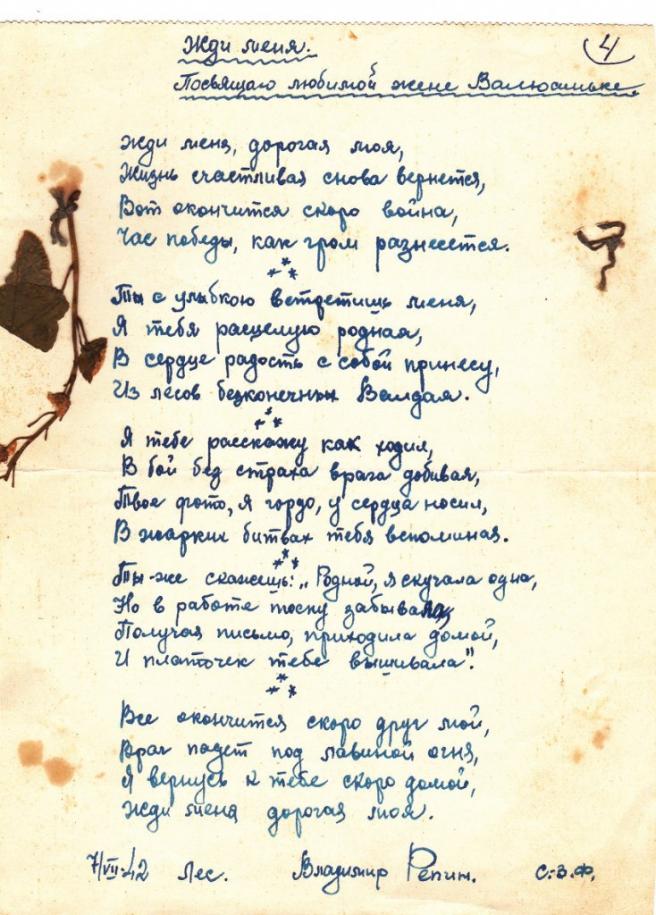 4
Жди меня.
Посвящаю любимой жене Валюсиньке.
Жди меня, дорогая моя,
Жизнь счастливая снова вернется,
Вот окончится скоро война,
Час победы, как гром разнесется.
***
Ты с улыбкою встретишь меня,
Я тебя расцелую родная,
В сердце радость с собой принесу,
Из лесов безконечных Валдая.
***
Я тебе расскажу как ходил,
В бой без страха врага добивая,
Твое фото, я гордо, у сердца носил,
В жарких битвах тебя вспоминая.
***
Ты-же скажешь: „Родной, я скучала одна,
Но в работе тоску забывала,
Получая письмо, приходила домой,
И платочек тебе вышивала".
***
Все окончится скоро друг мой,
Враг падет под лавиной огня,
Я вернусь к тебе скоро домой,
Жди меня дорогая моя.
7/VII-42 Лес. Владимир Репин. С.-З.Ф.